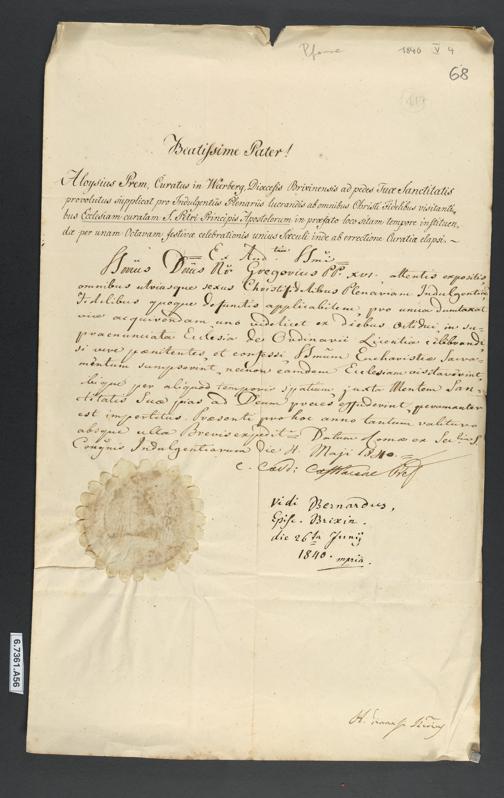 Pfarre 1840 V 4
68
Beatissime Pater!
Aloysius Prem, Curatus in Weerberg, Dioecesis Brixinensis ad pedes Tuae Sanctitatis
provolutus supplicat pro Indulgentiis Plenariis lucrandis ab omnibus Christi Fidelibus visitanti-
bus Ecclesiam curatam S. Petri Principis Apostolorum in praefato loco sitam tempore instituen-
dae per unam Octavam festivae celebrationis unius Saeculi inde ab errectione Curatiae elapsi. ~
Ex Aud.tiae SSmi
SSmus Dnus Nr Gregorius PP. XVI. attentis expositis
omnibus utriusque sexus Christifidelibus Plenariam Indulgentiam
Fidelibus quoque defunctis applicabilem, pro unica dumtaxat
vice acquirendam uno videlicet ex Diebus Octidui, in su-
praenunciata Ecclesia de Ordinarii Licentia celebrandi
si vere poenitentes, et confessi SSmum Eucharistiae Sacra-
mentum sumpserint, necnon eamdem Ecclesiam visitaverint,
ibique per aliquod temporis spatium juxta Mentem San-
ctitatis Suae pias ad Deum preces effuderint, peramanter
est impertitus. Praesenti pro hoc anno tantum valituro
absque ulla Brevis expedit.ne Datum Romae ex Sec.ria S.
Congnis Indulgentiarum die 4 Maji 1840.
C. Card: Castracane Praef
Vidi Bernardus,
Episc. Brixin.
die 26ta Junij
1840. mpria.
6.7361.A56